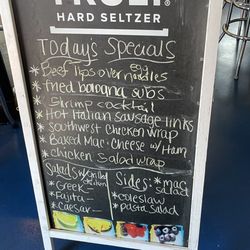 TRULY
HARD SELTZER
Today's Specials
* Beef Tips over egg noodles
* fried bologna subs
* Shrimp cocktail
* Hot Italian sausage links
* Southwest Chicken wrap
* Baked Mac + Cheese w/ Ham
* chicken Salad wrap
Salads w/ Grilled chicken
* Greek
* Fajita
* Caesar
Sides: * mac salad
* coleslaw
* pasta salad